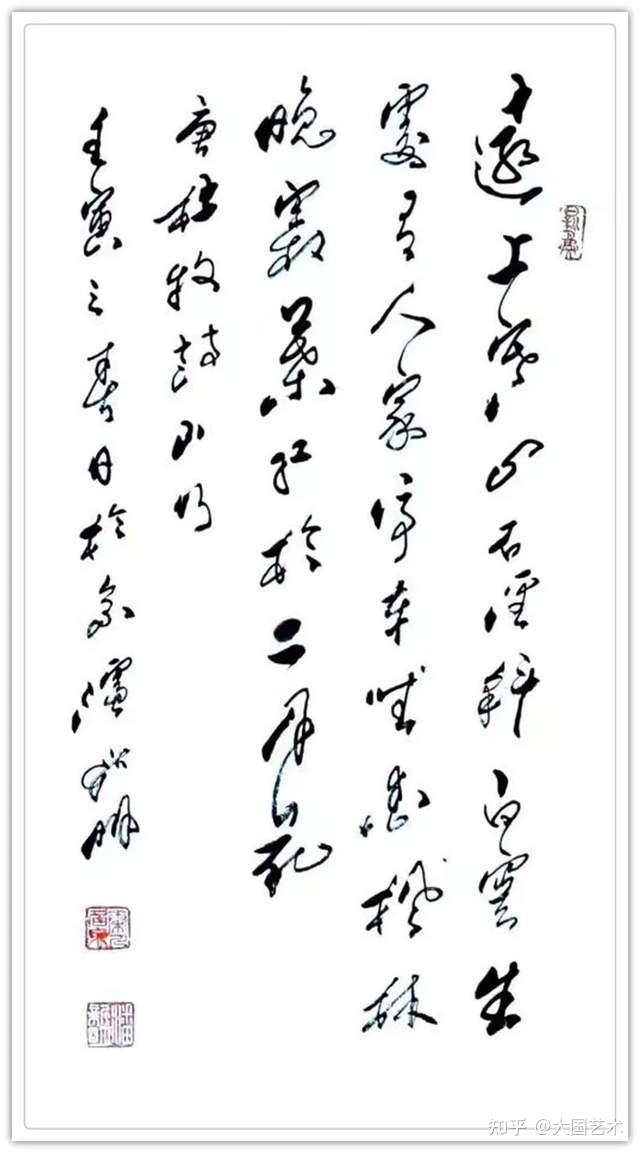 遠上寒山石徑斜白雲生
處有人家停車坐愛楓林
晚霜葉紅於二月花
唐杜牧詩山行
壬寅之春月於
知乎 @大国艺术